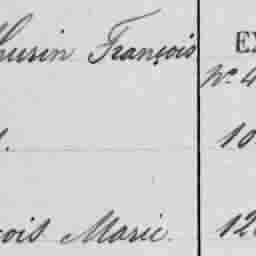 hurin François
EX
No. 4
10
çois Marie.
12